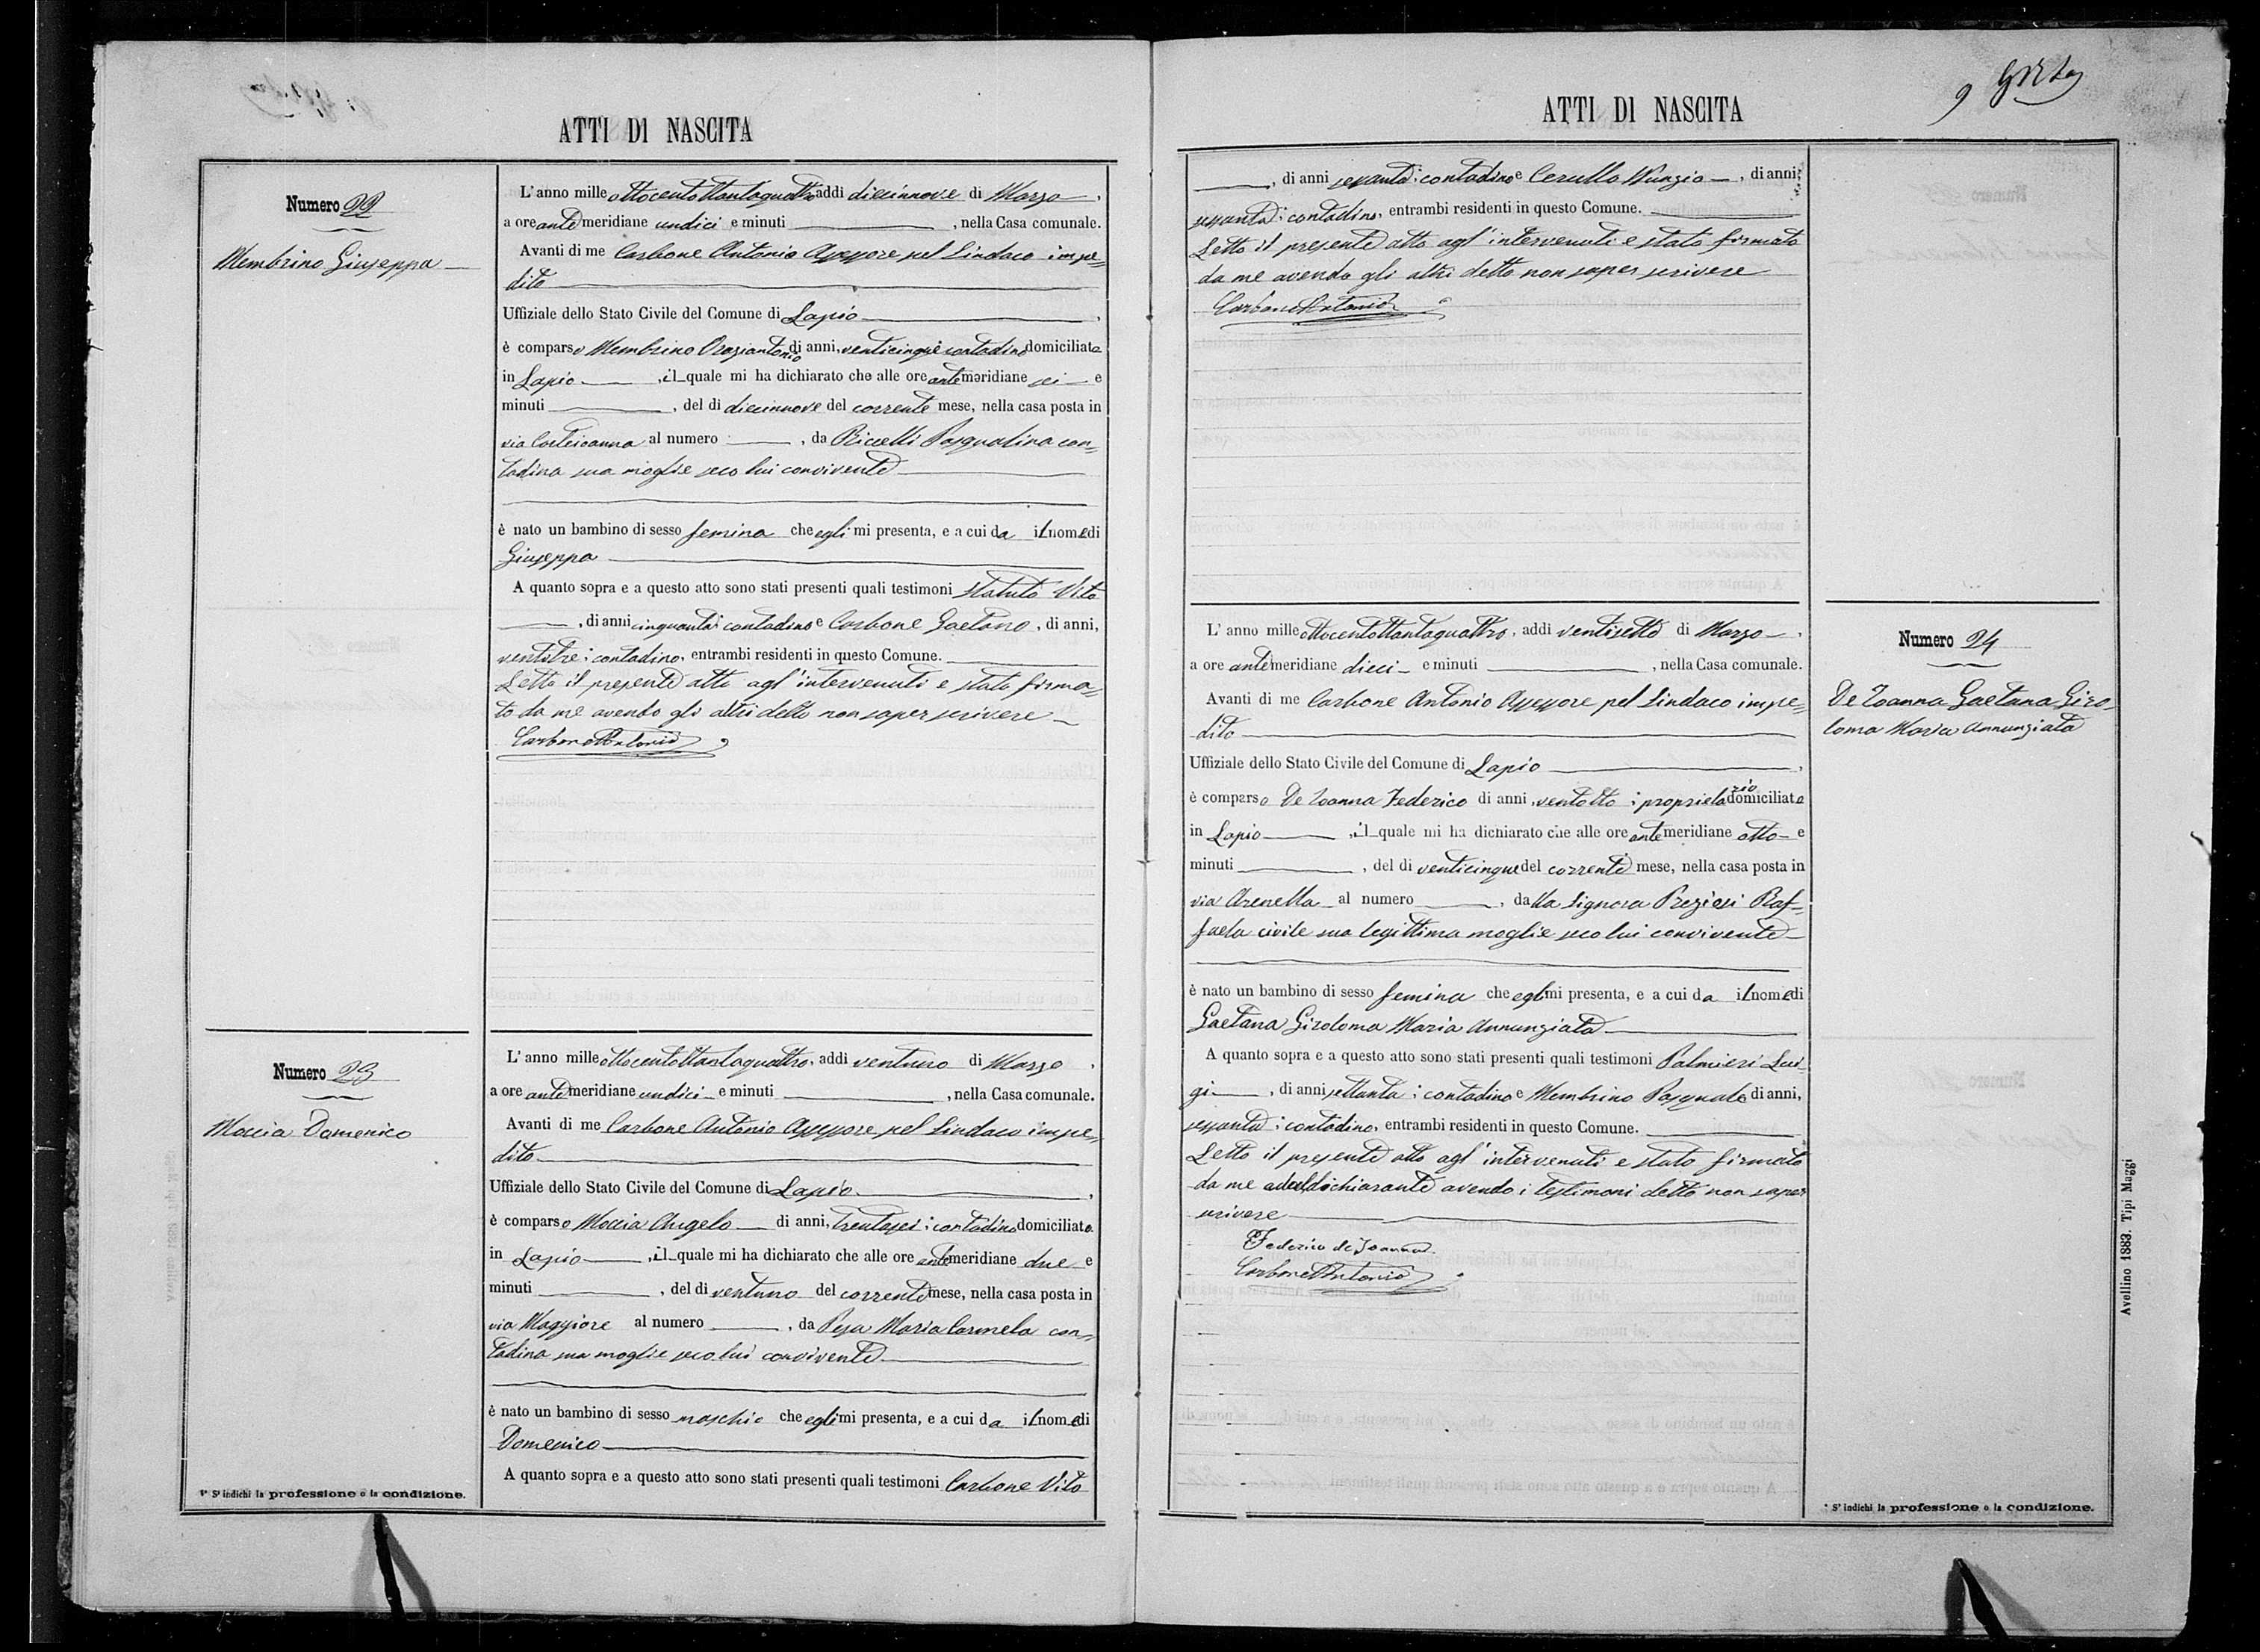 ATTI DI NASCITA
Numero 22
Membrino Giuseppa
L'anno mille ottocentottantaquattro, addi diecinnove di Marzo,
a ore antemeridiane undici e minuti , nella Casa comunale.
Avanti di me Carbone Antonio Assessore pel Sindaco impe=
dito
Uffiziale dello Stato Civile del Comune di Lapio,
è comparso Membrino Oraziantonio di anni, venticinque contadino domiciliato
in Lapio, il quale mi ha dichiarato che alle ore antemeridiane sei e
minuti , del di diecinnove del corrente mese, nella casa posta in
via al numero , da Riccelli Pasqualina con=
tadina sua moglie seco lui convivente
è nato un bambino di sesso femina che egli mi presenta, e a cui da il nome di
Giuseppa
A quanto sopra e a questo atto sono stati presenti quali testimoni Statuto Vito
, di anni cinquanta: contadino e Carbone Gaetano, di anni,
ventitre: contadino, entrambi residenti in questo Comune.
Letto il presente atto agl'intervenuti e stato firma=
to da me avendo gli altri detto non saper scrivere
Carbone Antonio
Numero 23
Moccia Domenico
L'anno mille ottocentottantaquattro, addi ventuno di Marzo,
a ore antemeridiane undici e minuti , nella Casa comunale.
Avanti di me Carbone Antonio Assessore pel Sindaco impe=
dito
Uffiziale dello Stato Civile del Comune di Lapio,
è comparso Moccia Angelo di anni, trentasei: contadino domiciliato
in Lapio, il quale mi ha dichiarato che alle ore antemeridiane due e
minuti , del di ventuno del corrente mese, nella casa posta in
via Maggiore al numero , da Pesa Maria Carmela con=
tadina sua moglie seco lui convivente
è nato un bambino di sesso maschio che egli mi presenta, e a cui da il nome di
Domenico
A quanto sopra e a questo atto sono stati presenti quali testimoni Carbone Vito
1* S'indichi la professione o la condizione.
9
ATTI DI NASCITA
, di anni sessanta: contadino e Cerullo Nunzio, di anni,
sessanta: contadino, entrambi residenti in questo Comune.
Letto il presente atto agl'intervenuti e stato firmato
da me avendo gli altri detto non saper scrivere
Carbone Antonio
Numero 24
De Ioanna Gaetana Giro=
loma Maria Annunziata
L'anno mille ottocentottantaquattro, addi ventisette di Marzo,
a ore antemeridiane dieci e minuti , nella Casa comunale.
Avanti di me Carbone Antonio Assessore pel Sindaco impe=
dito
Uffiziale dello Stato Civile del Comune di Lapio,
è comparso De Ioanna Federico di anni, ventotto: proprietario domiciliato
in Lapio, il quale mi ha dichiarato che alle ore antemeridiane otto e
minuti , del di venticinque del corrente mese, nella casa posta in
via Arenella al numero , dalla Signora Preziosi Raf=
faela civile sua legittima moglie seco lui convivente
è nato un bambino di sesso femina che egli mi presenta, e a cui da il nome di
Gaetana Giroloma Maria Annunziata
A quanto sopra e a questo atto sono stati presenti quali testimoni Palmieri Lui=
gi, di anni settanta: contadino e Membrino Pasquale di anni,
sessanta: contadino, entrambi residenti in questo Comune.
Letto il presente atto agl'intervenuti e stato firmato
da me e dal dichiarante avendo i testimoni detto non saper
scrivere
Federico de Joanna
Carbone Antonio
* S'indichi la professione o la condizione.
Avellino 1883. Tipi Maggi